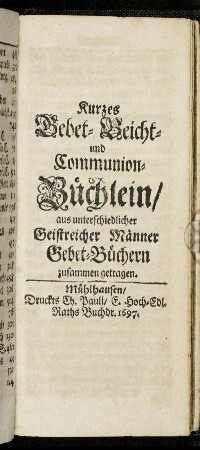 Kurzes
Gebet- Beicht-
und
Communion-
Büchlein/
aus unterschiedlicher
Geistreicher Männer
Gebet-Büchern
zusammen getragen.
Mühlhausen/
Druckts Ch. Pauli/ E. Hoch-Edl.
Raths Buchdr. 1697.